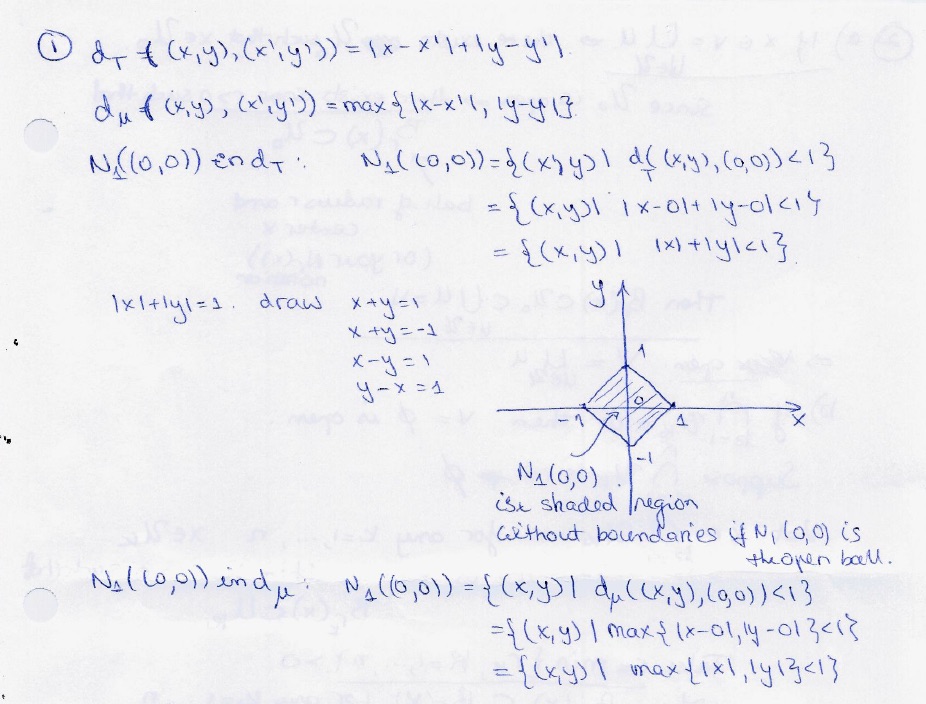 ① d_T ((x,y), (x',y')) = |x-x'|+|y-y'|.
d_μ ((x,y), (x',y')) = max{|x-x'|, |y-y'|}.
N_1((0,0)) in d_T : N_1((0,0)) = {(x,y) | d_T((x,y),(0,0))<1}
= {(x,y) | |x-0|+|y-0|<1}
= {(x,y) | |x|+|y|<1}.
|x|+|y|=1. draw x+y=1
x+y=-1
x-y=1
y-x=1
y
1
0
-1 1 x
-1
N_1(0,0)
is shaded region
without boundaries if N_1(0,0) is
the open ball.
N_1((0,0)) in d_μ : N_1((0,0)) = {(x,y) | d_μ((x,y),(0,0))<1}
= {(x,y) | max{|x-0|,|y-0|}<1}
= {(x,y) | max{|x|,|y|}<1}